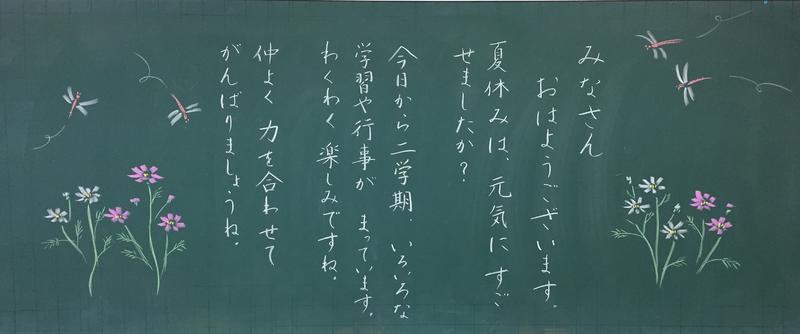 みなさん
おはようございます。
夏休みは、元気にすご
せましたか？
今日から二学期。いろいろな
学習や行事が まっています。
わくわく楽しみですね。
仲よく 力を合わせて
がんばりましょうね。